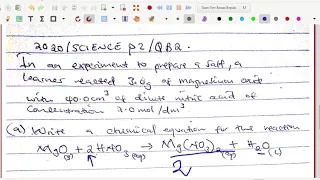 2020/SCIENCE P2/QB2.
In an experiment to prepare a salt, a
learner reacted 3.0g of magnesium oxide
with 40.0cm³ of dilute nitric acid of
concentration 2.0 mol/dm³
(a) Write a chemical equation for the reaction
MgO(s) + 2HNO₃(aq) → Mg(NO₃)₂(aq) + H₂O(l)
2